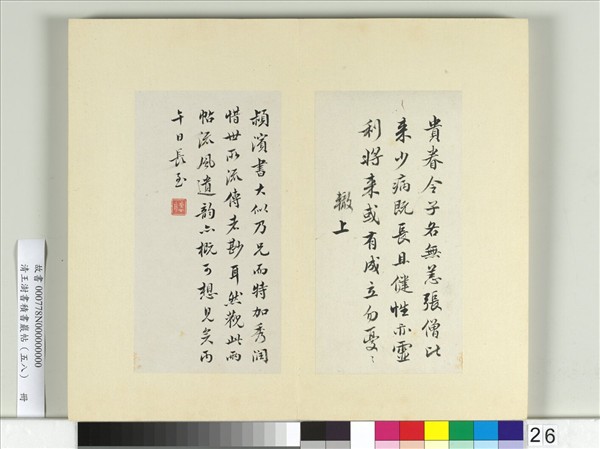 貴眷令子各無恙張僧比
〻来少病既長且健性亦靈
利將来或有成立勿憂〻
轍上
潁濱書大似乃兄而特加秀潤
惜世所流傳者尠耳然觀此兩
帖流風遺韵亦概可想見矣丙
午日長至
故書 000778N000000000
清王澍書積書巖帖(五八) 冊
26